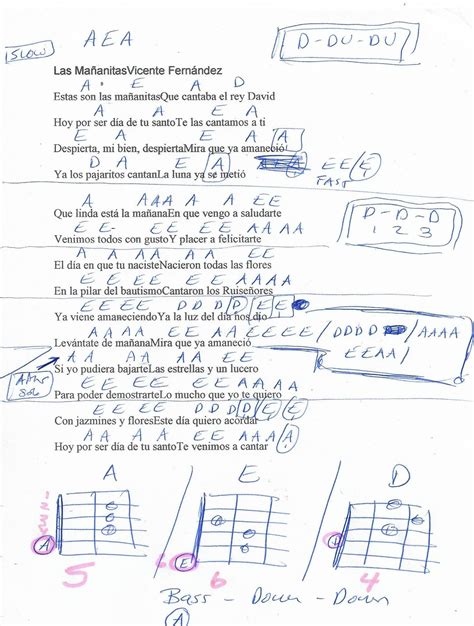 SLOW
A E A
D - DU - DU
Las MañanitasVicente Fernández
A E A D
Estas son las mañanitasQue cantaba el rey David
A A E A
Hoy por ser día de tu santoTe las cantamos a ti
E A E A A
Despierta, mi bien, despiertaMira que ya amaneció
D A E A E E E
Ya los pajaritos cantanLa luna ya se metió
FAST
A AAA A A EE
Que linda está la mañanaEn que vengo a saludarte
D - D - D
1 2 3
EE EE EE AA AA
Venimos todos con gustoY placer a felicitarte
A A AA AA EE
El día en que tu nacisteNacieron todas las flores
EE EE EE AA AA
En la pilar del bautismoCantaron los Ruiseñores
EE EE DD D D E E
Ya viene amaneciendoYa la luz del día nos dio
AAAA EE AA EEEE / DDDD / AAAA
Levántate de mañanaMira que ya amaneció
EEAA /
AA AA AA EE
Si yo pudiera bajarteLas estrellas y un lucero
EE EE EE AA AA
Para poder demostrarteLo mucho que yo te quiero
EE EE DD D D E E
Con jazmines y floresEste día quiero acordar
AA A A EE AA A A
Hoy por ser día de tu santoTe venimos a cantar
A E D
A E
5 6 4
Bass - Down - Down
A